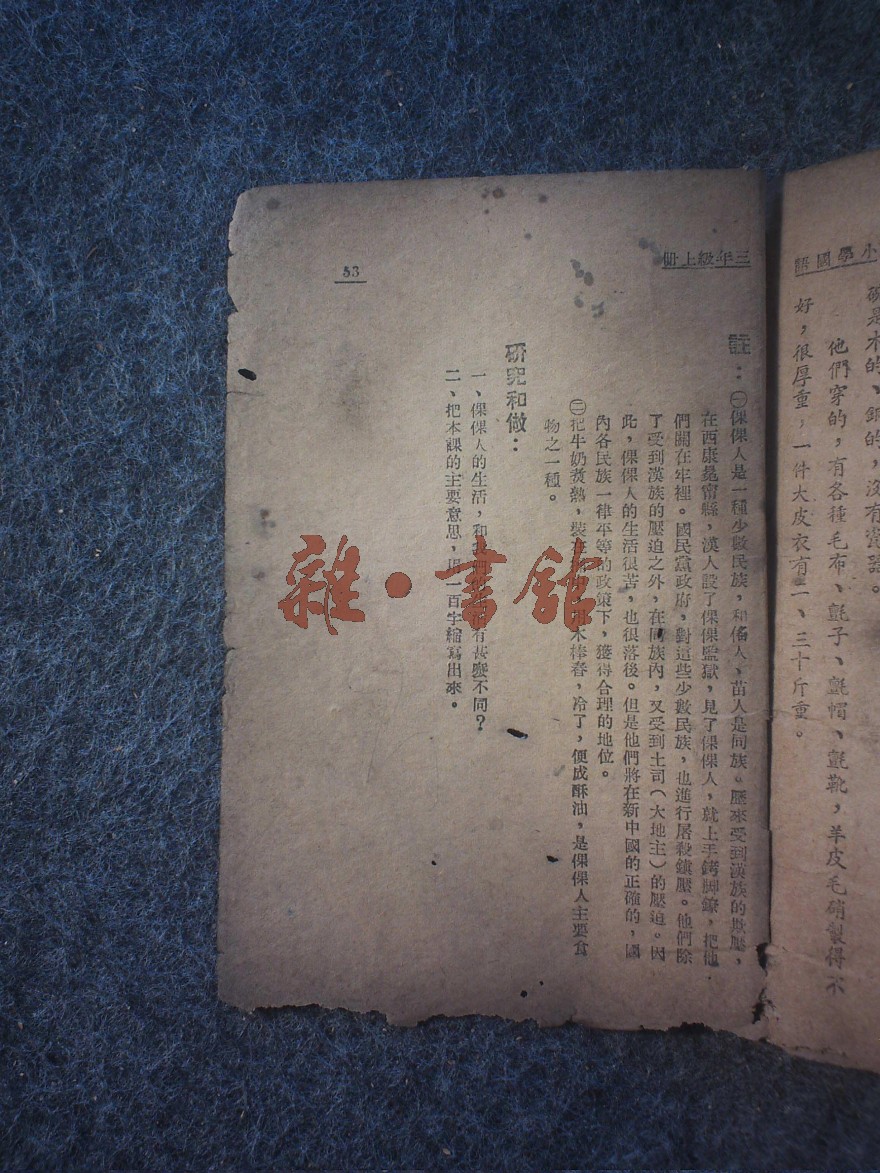 小學國語
碗是木的、銅的，沒有瓷器。
他們穿的，有各種毛布、氈子、氈帽、氈靴，羊皮毛硝製得不
好，很厚重，一件大皮衣有二、三十斤重。
三年級上冊
註：㊀倮倮人是一種少數民族，和傜人、苗人是同族。歷來受到漢族的欺壓，
在西康冕甯縣，漢人設了倮倮監獄，見了倮倮人，就上手銬脚鐐，把他
們關在牢裡。國民黨政府，對這些少數民族，也進行屠殺鎮壓。他們除
了受到漢族的壓迫之外，在同族內，又受到土司（大地主）的壓迫。因
此，倮倮人的生活很苦，也很落後。但是他們將在新中國的正確的，國
內各民族一律平等的政策下，獲得合理的地位。
㊁把牛奶煑熱，裝在桶中，用木棒舂，冷了，便成酥油，是倮倮人主要食
物之一種。
研究和做：
一、倮倮人的生活，和我們的生活有甚麼不同？
二、把本課的主要意思，用一百字縮寫出來。
53
雜·書館